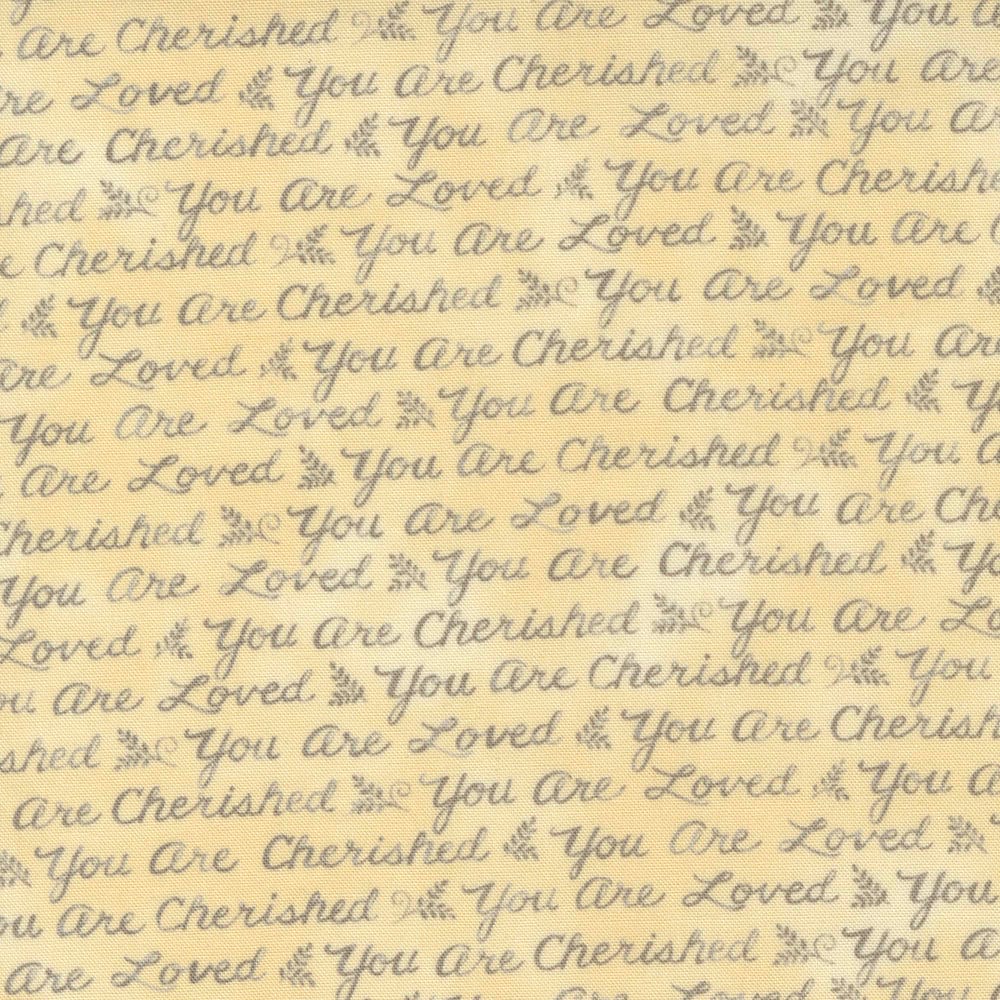 Are Cherished You Are Loved You
Loved You Are Cherished You Are
Are Cherished You Are Loved You
You Are Loved You Are Cherished
Cherished You Are Loved You Are
You Are Cherished You Are Loved
Are Loved You Are Cherished You
You Are Loved You Are Cherished
Are Loved You Are Cherished You
Cherished You Are Loved You Are
You Are Loved You Are Cherished
Loved You Are Cherished You Are
Are Loved You Are Cherished You
You Are Loved You Are Cherished
Are Cherished You Are Loved You
You Are Cherished You Are Loved
Are Cherished You Are Loved You
Are Loved You Are Cherished You